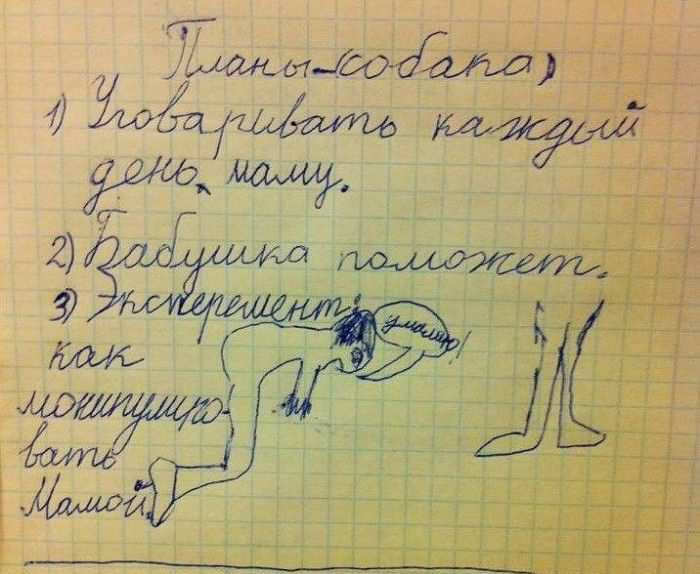 Планы-(собака)
1) Уговаривать каждый
день маму.
2) Бабушка поможет.
3) Эксперемент:
как
монипулиро-
вать
Мамой.
умаляю!